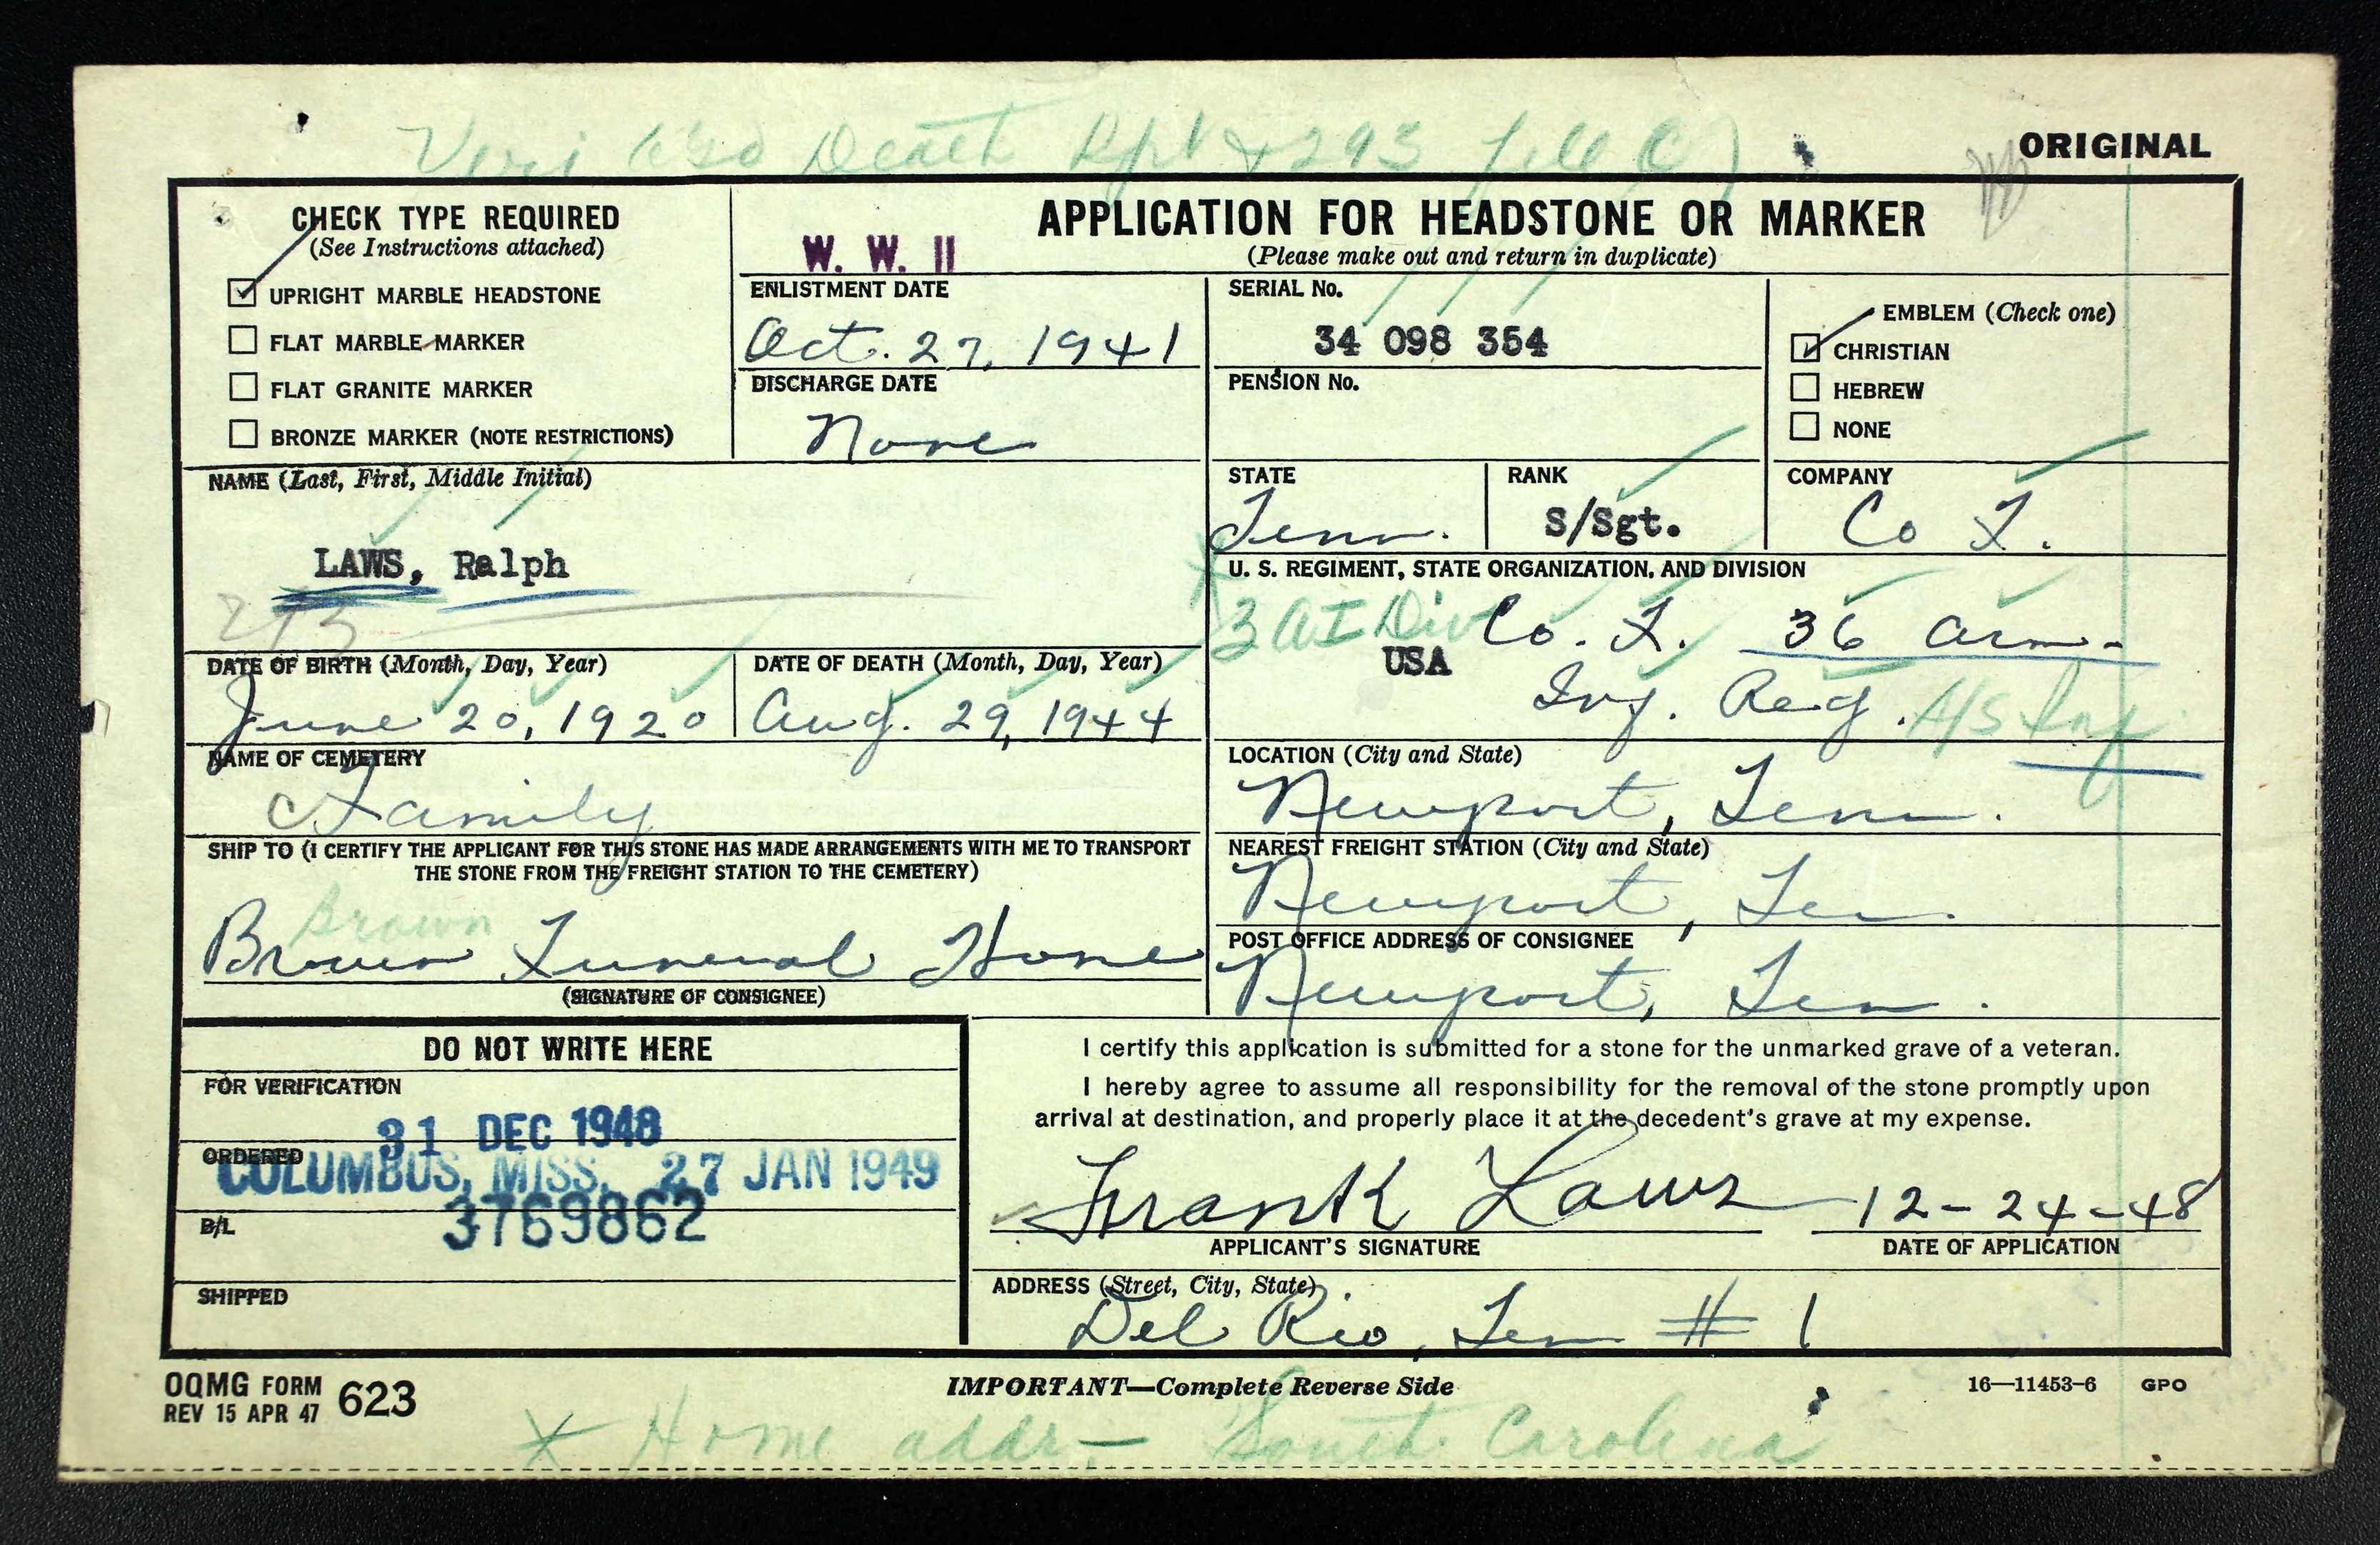 Death Rpt & 293 file
ORIGINAL
CHECK TYPE REQUIRED
(See Instructions attached)
UPRIGHT MARBLE HEADSTONE
FLAT MARBLE MARKER
FLAT GRANITE MARKER
BRONZE MARKER (NOTE RESTRICTIONS)
W. W. II
APPLICATION FOR HEADSTONE OR MARKER
(Please make out and return in duplicate)
ENLISTMENT DATE
Oct. 27, 1941
DISCHARGE DATE
None
SERIAL No.
34 098 354
PENSION No.
EMBLEM (Check one)
CHRISTIAN
HEBREW
NONE
NAME (Last, First, Middle Initial)
LAWS, Ralph
293
STATE
Tenn.
RANK
S/Sgt.
COMPANY
Co F.
U. S. REGIMENT, STATE ORGANIZATION, AND DIVISION
3 Div Co. F. 36 Arm.
USA Inf. Reg. Inf
DATE OF BIRTH (Month, Day, Year)
June 20, 1920
DATE OF DEATH (Month, Day, Year)
Aug. 29, 1944
NAME OF CEMETERY
Family
LOCATION (City and State)
Newport, Tenn.
SHIP TO (I CERTIFY THE APPLICANT FOR THIS STONE HAS MADE ARRANGEMENTS WITH ME TO TRANSPORT
THE STONE FROM THE FREIGHT STATION TO THE CEMETERY)
Brown
Brown Funeral Home
(SIGNATURE OF CONSIGNEE)
NEAREST FREIGHT STATION (City and State)
Newport, Ten.
POST OFFICE ADDRESS OF CONSIGNEE
Newport, Ten.
DO NOT WRITE HERE
FOR VERIFICATION
31 DEC 1948
ORDERED
COLUMBUS, MISS. 27 JAN 1949
B/L
3769862
SHIPPED
I certify this application is submitted for a stone for the unmarked grave of a veteran.
I hereby agree to assume all responsibility for the removal of the stone promptly upon
arrival at destination, and properly place it at the decedent's grave at my expense.
Frank Laws 12-24-48
APPLICANT'S SIGNATURE
DATE OF APPLICATION
ADDRESS (Street, City, State)
Del Rio, Ten #1
OQMG FORM 623
REV 15 APR 47
IMPORTANT—Complete Reverse Side
16—11453-6 GPO
* Home addr — South Carolina